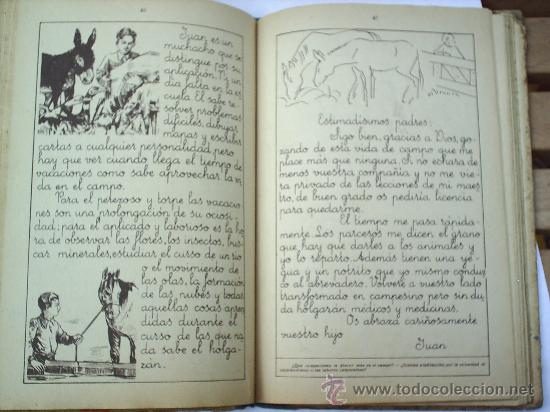 46
Juan es un
muchacho que se
distingue por su
aplicación. Ni un
día falta en la es
cuela. El sabe re
solver problemas
difíciles, dibujar
mapas y escribir
cartas a cualquier personalidad, pero
hay que ver cuando llega el tiempo de
vacaciones como sabe aprovechar la vi
da en el campo.
Para el perezoso y torpe las vacacio
nes son una prolongación de su ociosi
dad; para el aplicado y laborioso es la ho
ra de observar las flores, los insectos, bus
car minerales, estudiar el curso de un río
o el movimiento de
las olas, la formación
de las nubes y todas
aquellas cosas apren
didas durante el
curso de las que na
da sabe el holga-
zán.
47
Estimadísimos padres:
Sigo bien, gracias a Dios, go
zando de esta vida de campo que me
place más que ninguna. Si no echara de
menos vuestra compañía y no me vie
ra privado de las lecciones de mi maes
tro, de buen grado os pediría licencia
para quedarme.
El tiempo me pasa rápida
mente. Los parceros me dicen el grano
que hay que darles a los animales y
yo lo reparto. Además tienen una ye
gua y un potrito que yo mismo conduz
co al abrevadero. Volveré a vuestro lado
transformado en campesino pero sin du
da holgarán médicos y medicinas.
Os abraza cariñosamente
vuestro hijo
Juan
todocoleccion
www.todocoleccion.net